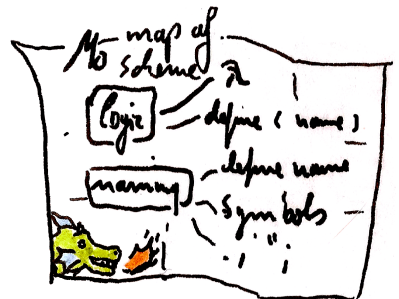 My map of
scheme
logic
λ
define (name)
naming
define name
symbols